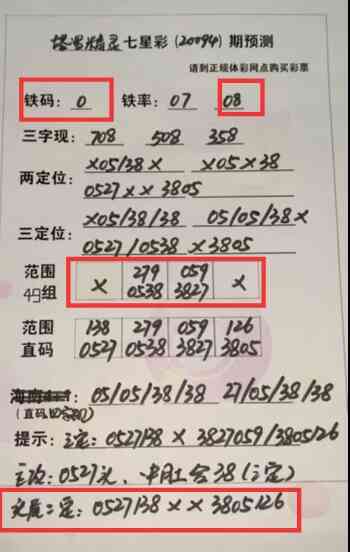 塔罗精灵七星彩(20094)期预测
请到正规体彩网点购买彩票
铁码: 0 铁率: 07 08
三字现: 708 508 358
两定位: X05/38X X05X38
0527XX3805
三定位: X05/38/38 05/05/38X
0527/0538 X3805
范围 279 059
49组 X 0538 3827 X
范围 138 279 059 126
直码 0527 0538 3827 3805
05/05/38/38 27/05/38/38
(直码
提示: 三定: 0527138 X 3827059/3805126
主攻: 0527头、中肚合38(三定)
头尾二定: 0527138 X X 3805126